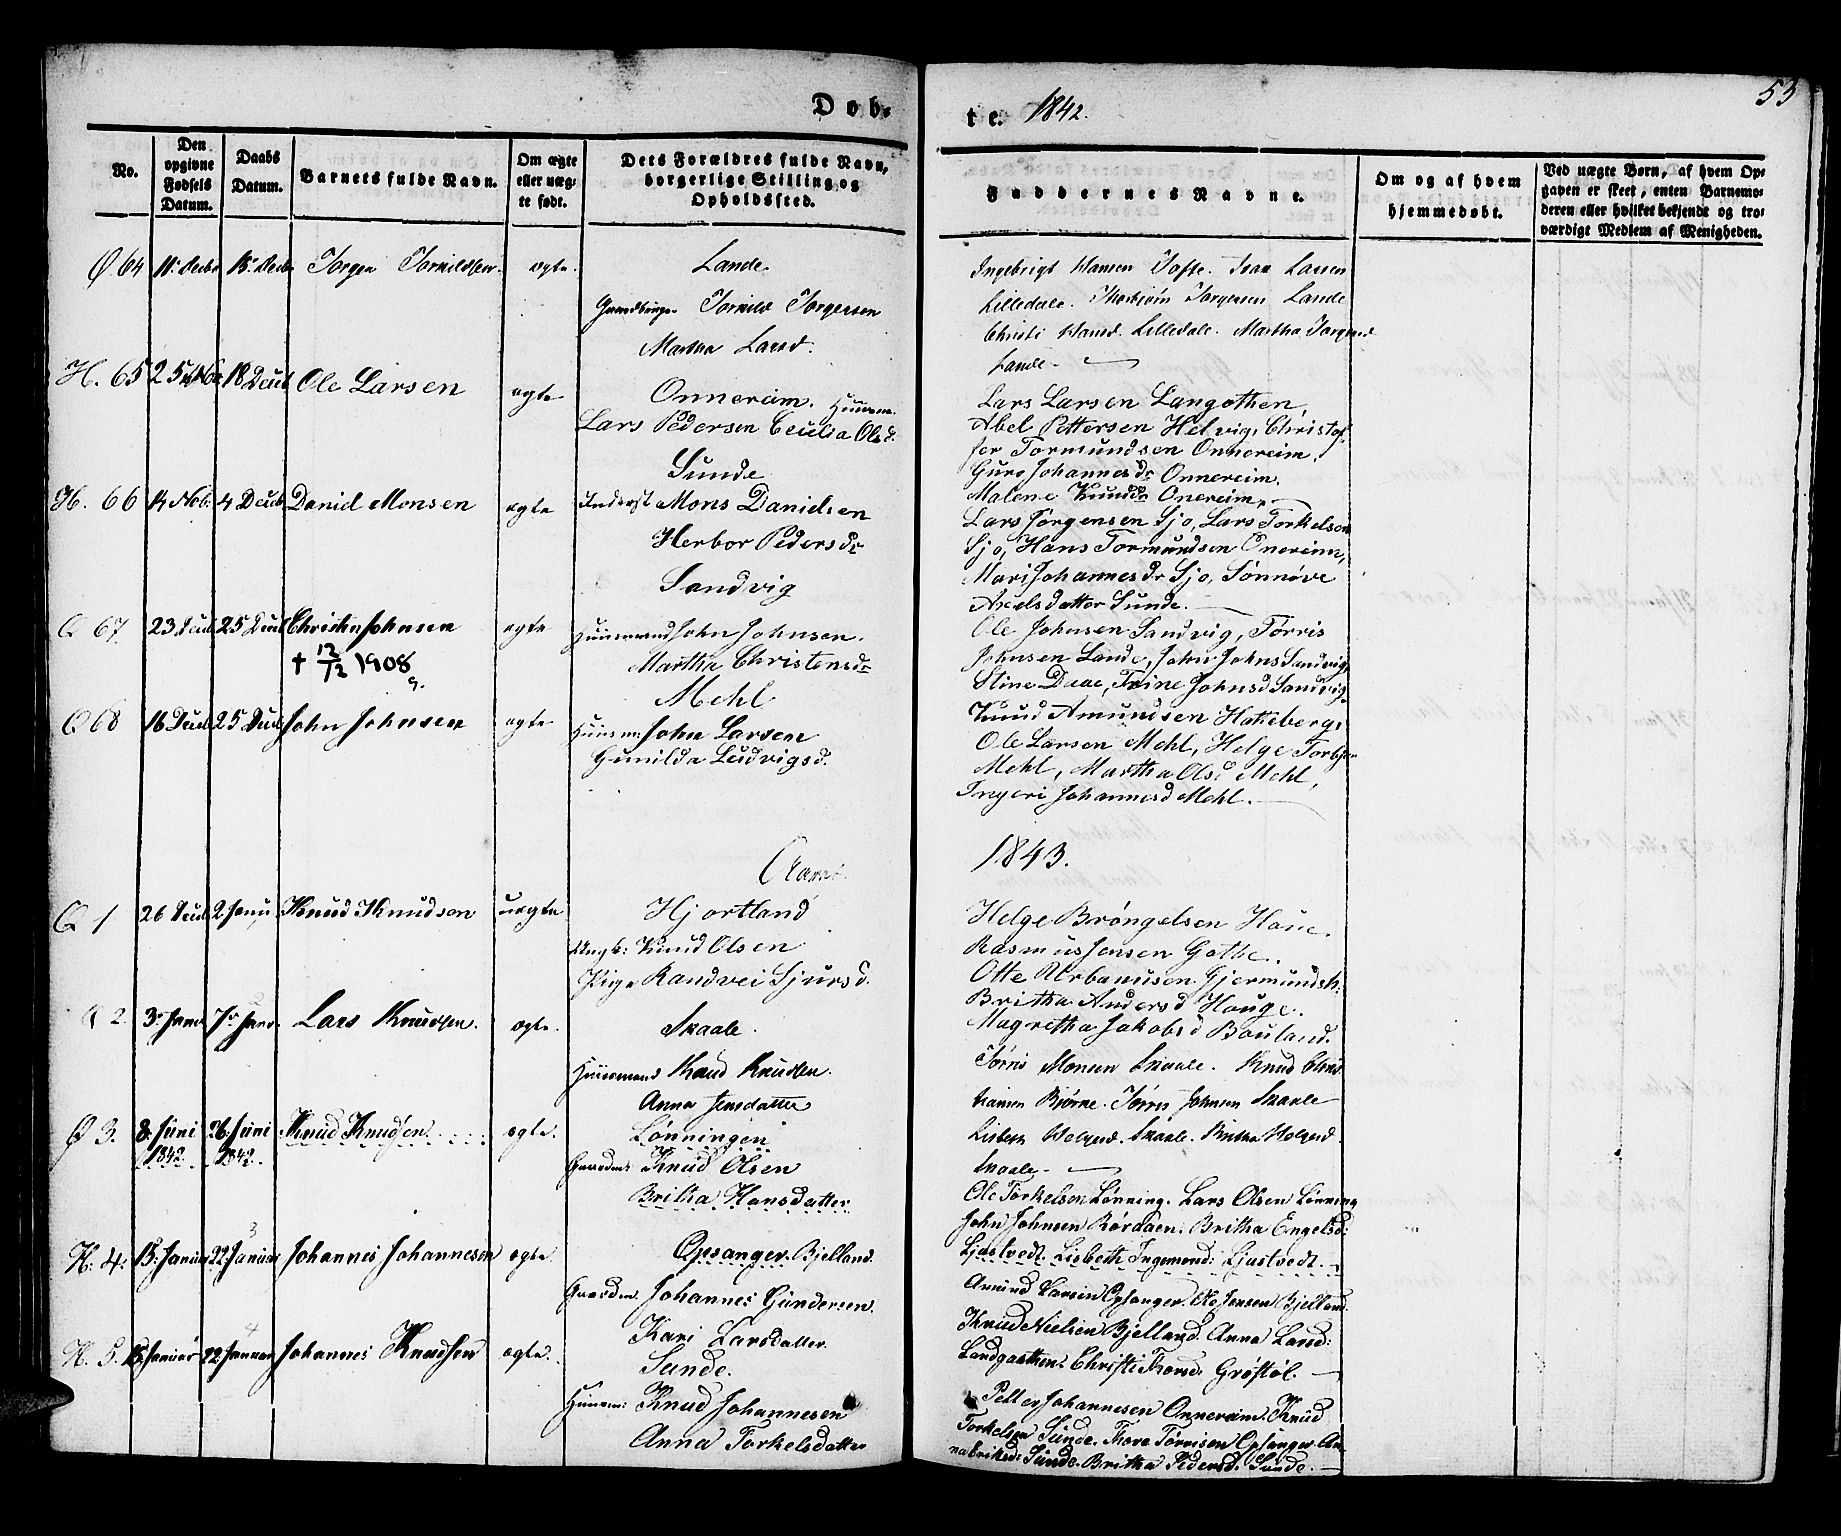 53
Døb-
te. 1842.
No.
Den opgivne Fødsels Datum.
Daabs Datum.
Barnets fulde Navn.
Om ægte eller uæg-te født.
Dets Forældres fulde Navn, borgerlige Stilling og Opholdssted.
Faddernes Navne.
Om og af hvem hjemmedøbt.
Ved uægte Børn, af hvem Op-gaven er skeet, enten Barnemo-deren eller hvilket bekjendt og tro-værdigt Medlem af Menigheden.
Q 64 11. Decbr 18. Decbr Torger Torkildsen ægte. Lande.
Torkild Torgersen
Martha Larsd.
Ingebrigt Hansen Tofte. Ivar Larsen
Lilledale. Thorbjørn Torgersen Lande
Christi Hansd. Lilledale. Martha Torgersd
Lande.
H. 65 25 18 Decb Ole Larsen ægte Onnereim. Huusm.
Lars Pedersen Cecilia Olsd.
Lars Larsen Langothen,
Abel Pettersen Helvig, Christof-
fer Tormundsen Onnereim.
Guro Johannesdr Onnereim.
Malene Knudsdr Onereim,
H. 66 14 Nob. 4 Decb Daniel Monsen ægte Sunde
Inderst Mons Danielsen
Herbor Pedersdr
Lars Jørgensen Sjo, Lars Torkelsen
Sjo, Hans Tormundsen Onereim,
Mari Johannesdr Sjo, Sønnøve
Axelsdatter Sunde.
Q 67 23 Decb 25 Decb Christen Johnsen ægte Sandvig
† 12/12 1908
Huusmand John Johnsen.
Martha Christensdr
Ole Johnsen Sandvig, Tørris
Johnsen Lande, John Johns Sandvig,
Stine Daae, Trine Johnsd Sandvig
Q 68 16 Decb 25 Decb John Johnsen ægte Mehl
Huusm John Larsen
Gunilda Ludvigsd.
Knud Amundsen Hatteberg,
Ole Larsen Mehl, Helge Torbjør
Mehl, Martha Olsd Mehl,
Ingeri Johannesd Mehl.
Aaret
1843.
Q 1 26 Decb 2 Janu Knud Knudsen uægte Hjortland
Ungk: Knud Olsen
Pige Randvei Sjursd.
Helge Brøngelsen Houe.
Rasmus Jensen Gothe.
Otte Urbanusen Gjermundsh:
Britha Andersd Houge.
Magretha Jakobsd Bouland.
Q 2. 3. Janr 7. Janr. Lars Knudsen. ægte. Skaale.
Huusmand Knud Knudsen.
Anna Jensdatter
Tørris Monsen Skaale. Knud Chris
tiansen Bjørne. Tørris Johnsen Skaale
Lisbeth Helgesd. Skaale. Britha Helgesd.
Skaale.
Q 3. 8. Juni 1842. 26. Juni 1842. Knud Knudsen. ægte. Lønningen
Gaardm: Knud Olsen
Britha Hansdatter
Ole Torkelsen Lønning. Lars Olsen Lønning
John Johnsen Rørdaen. Britha Engelsd:
Ljustvedt. Lisbeth Ingemond: Ljustvedt.
H. 4. 15. Januar 22. Januar Johannes Johannesen ægte. Opsanger. Bjelland.
Gaardm Johannes Gundersen.
Kari Larsdatter
Amund Larsen Opsanger. Jensen Bjelland.
Knud Nielsen Bjelland. Anna Larsd:
Landgarthen. Christi Thorsd. Grøstøl.
H. 5. 18. Januar 22. Januar Johannes Knudsen ægte. Sunde.
Huusm: Knud Johannesen
Anna Torkelsdatter
Petter Johannesen Onnereim. Knud
Torkelsen Sunde. Thore Tørrisen Opsanger. An-
na Eriksd: Sunde. Britha Pedersd: Sunde.